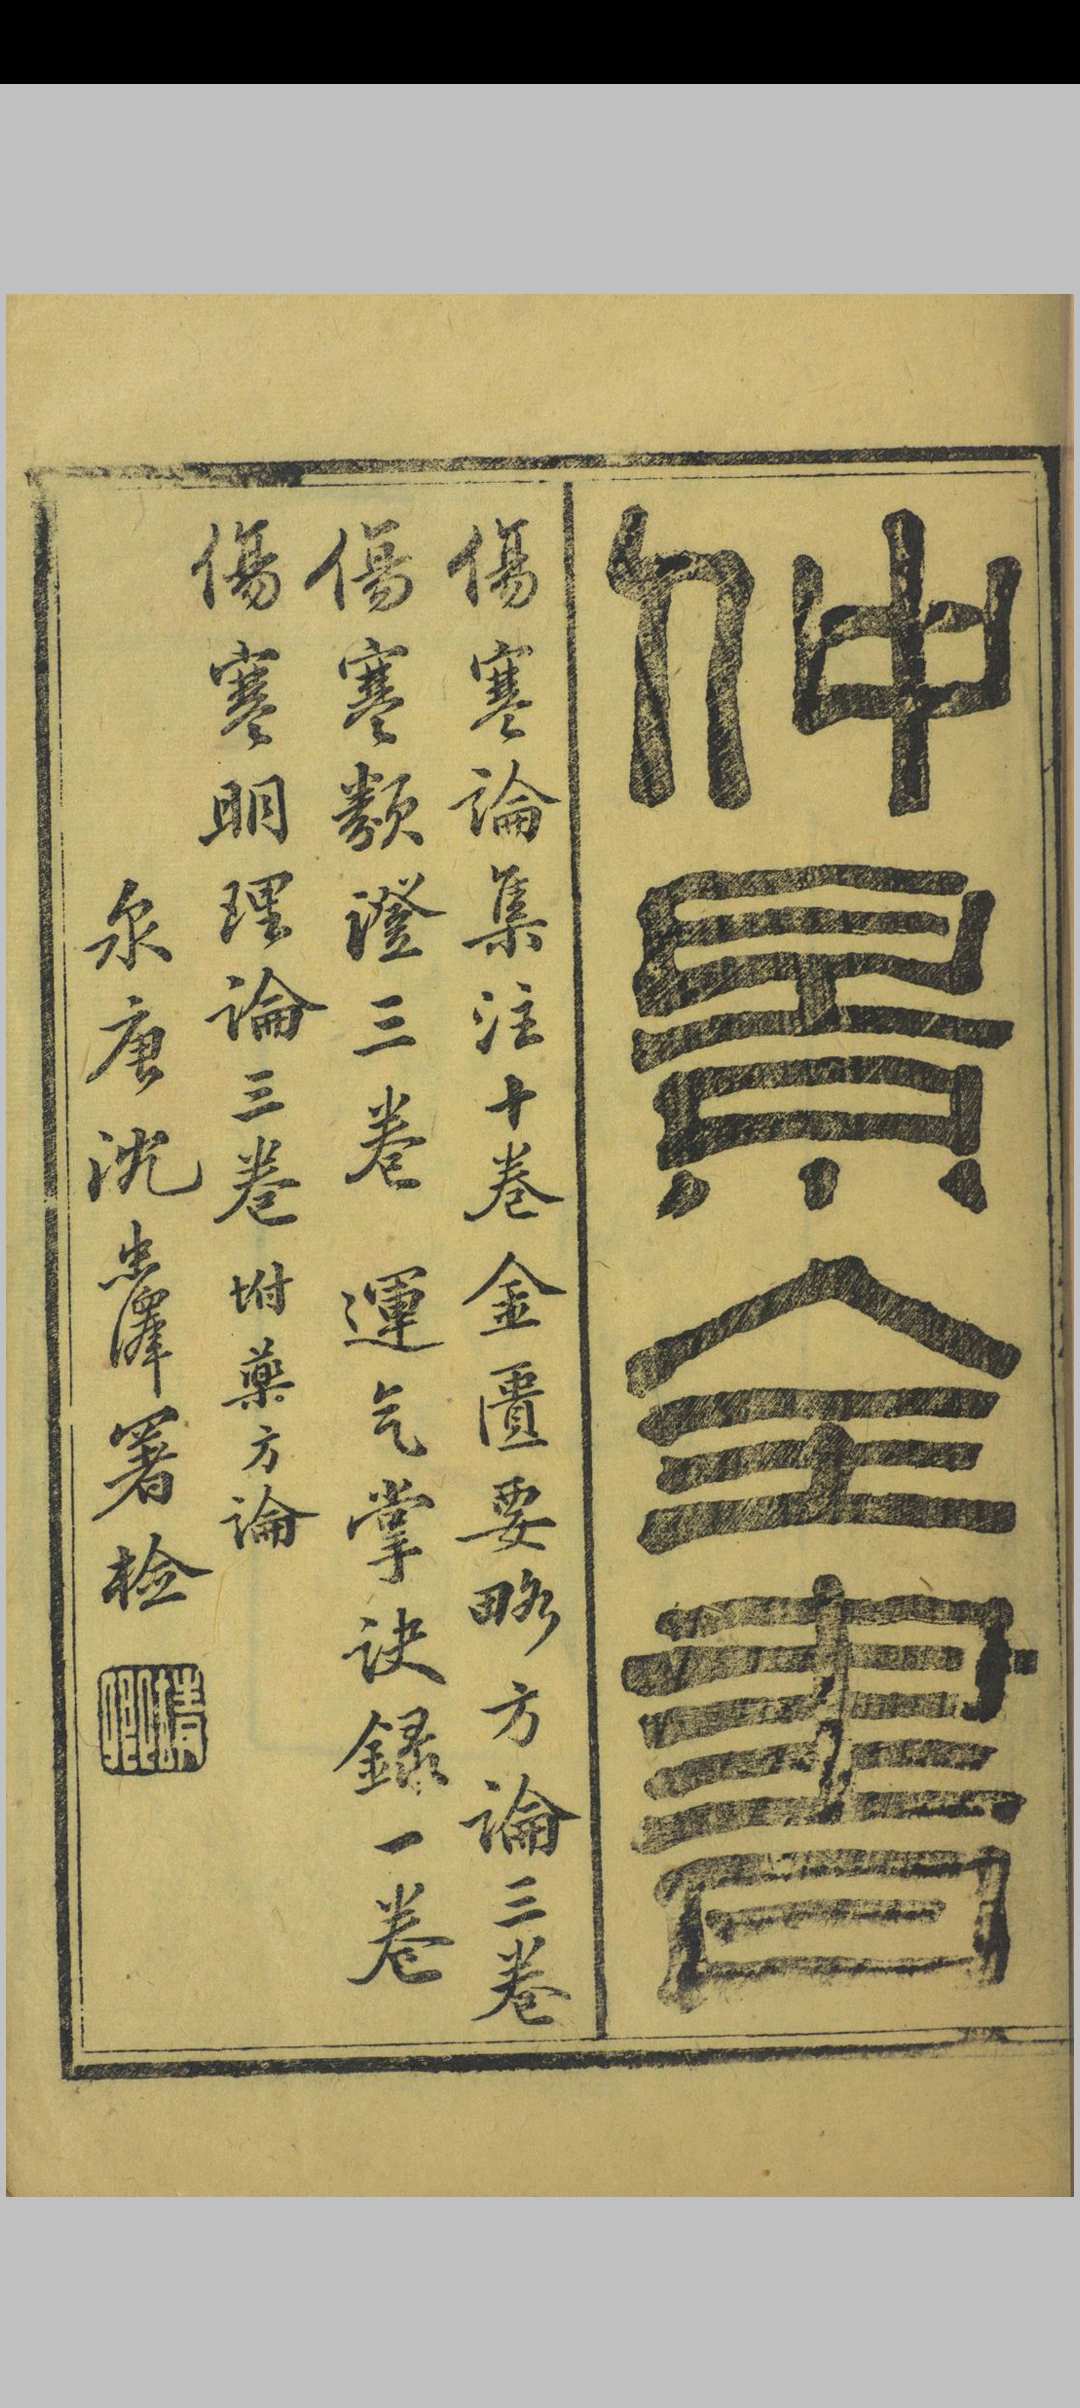 仲景全書
傷寒論集注十卷金匱要略方論三卷
傷寒類證三卷 運氣掌訣錄一卷
傷寒明理論三卷坿藥方論
泉唐沈忠澤署檢